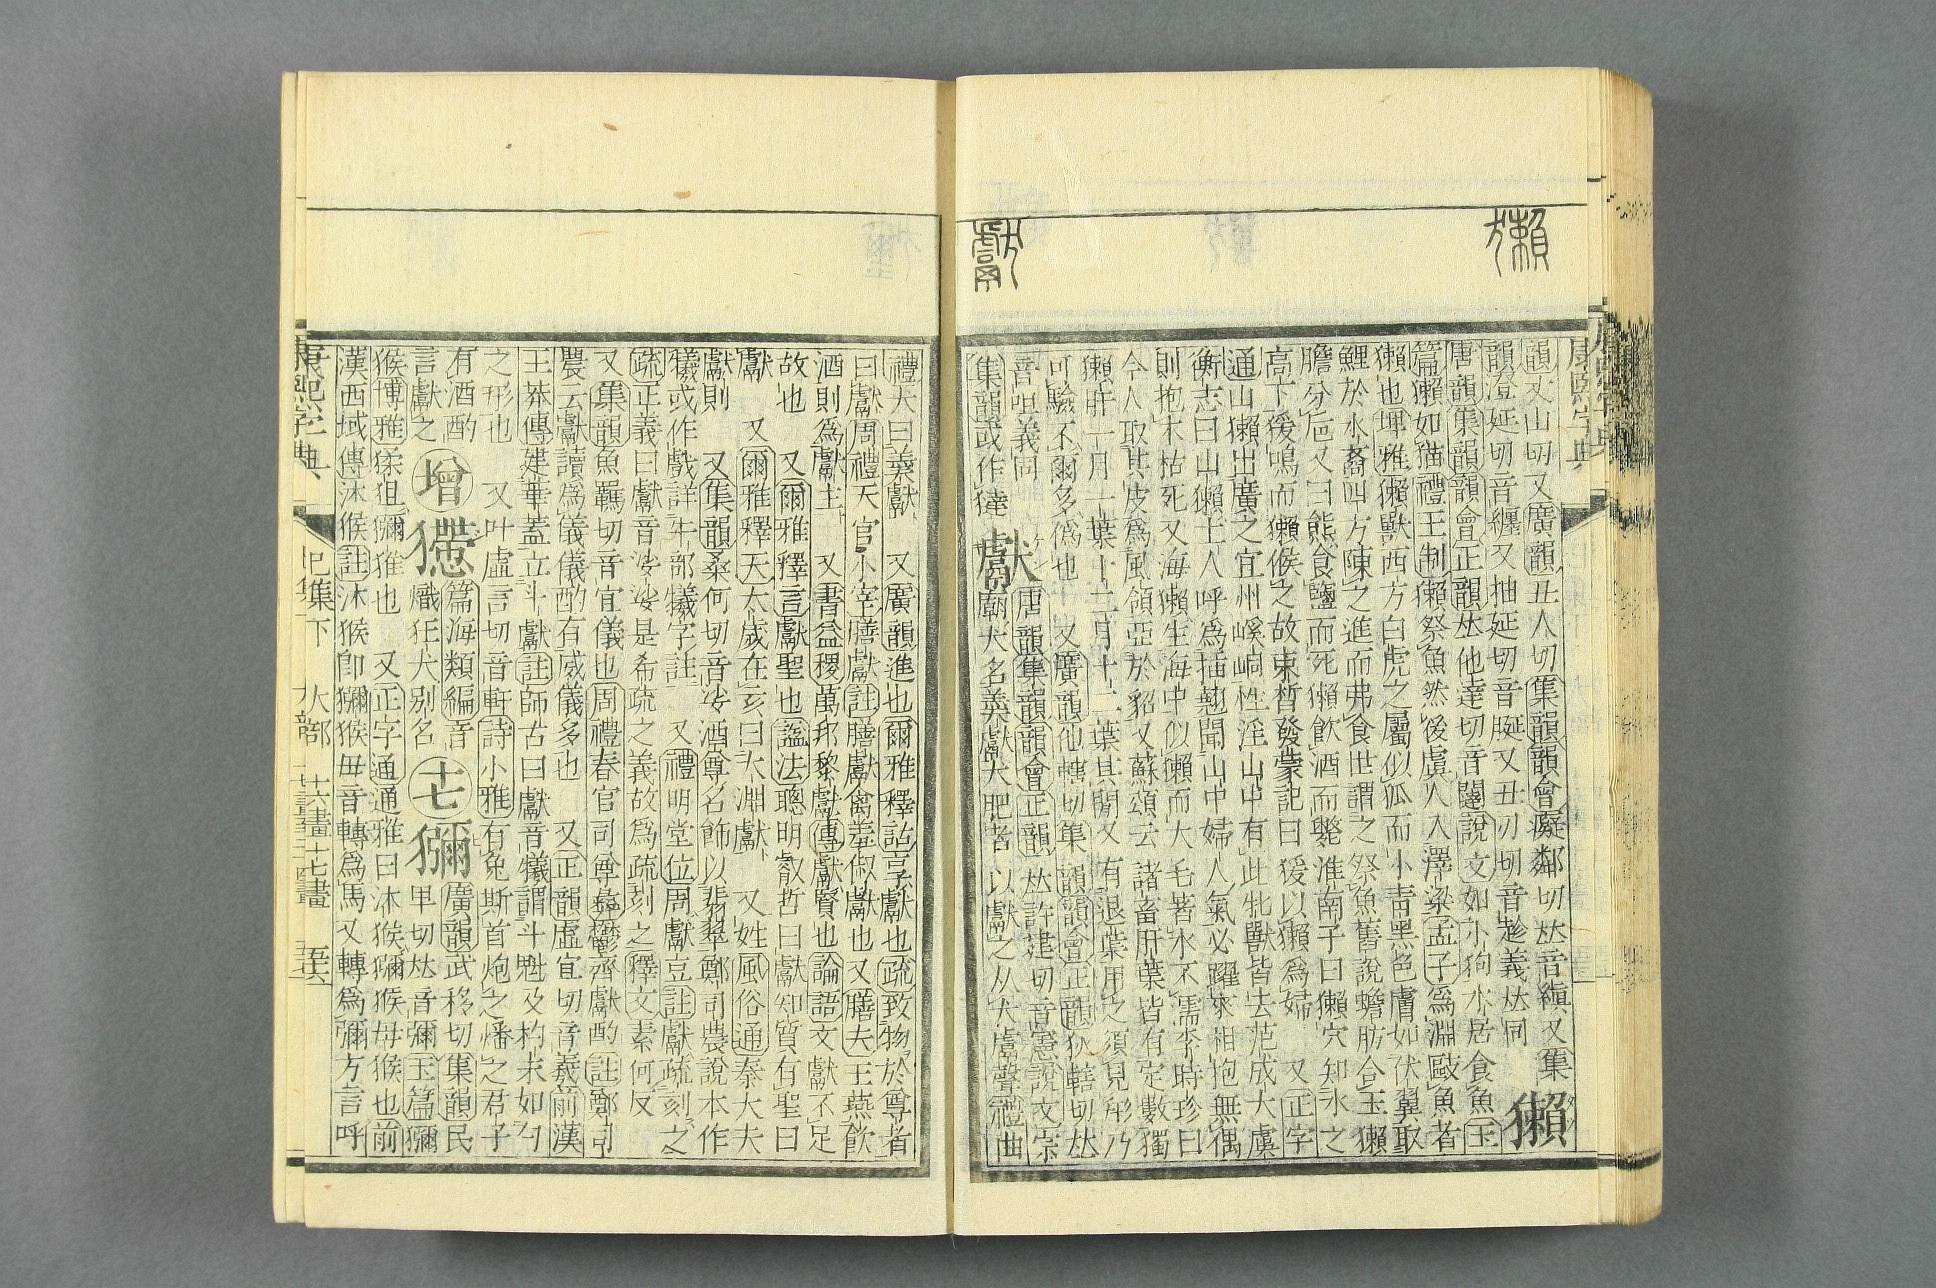 獺
獻
韻丈山切又廣韻丑人切集韻韻會癡鄰切𠀤音縝又集
韻澄延切音纏又抽延切音脠又丑刃切音趁義𠀤同
獺
唐韻集韻韻會正韻𠀤他達切音闥說文如小狗水居食魚玉
篇獺如貓禮王制獺祭魚然後虞人入澤梁孟子爲淵敺魚者
獺也埤雅獺獸西方白虎之屬似狐而小靑黑色膚如伏翼取
鯉於水裔四方陳之進而弗食世謂之祭魚舊說蟾肪合玉獺
膽分巵又曰熊食鹽而死獺飮酒而斃淮南子曰獺穴知水之
高下猨鳴而獺候之故束晳發蒙記曰猨以獺爲婦 又正字
通山獺出廣之宜州嵠峒性淫山中有此牝獸皆去范成大虞
衡志曰山獺土人呼爲插翹聞山中婦人氣必躍來相抱無偶
則抱木枯死又海獺生海中似獺而大毛著水不濡李時珍曰
今人取其皮爲風領亞於貂又蘇頌云諸畜肝葉皆有定數獨
獺肝一月一葉十二月十二葉其閒又有退葉用之須見形乃
可驗不爾多僞也 又廣韻他鎋切集韻韻會正韻狄轄切𠀤
音呾義同
集韻或作㺚
獻
唐韻集韻韻會正韻𠀤許建切音憲說文宗
廟犬名羹獻犬肥者以獻之从犬鬳聲禮曲
禮犬曰羹獻 又廣韻進也爾雅釋詁享獻也疏致物於尊者
曰獻周禮天官小宰膳獻註膳獻禽羞俶獻也又膳夫王燕飮
酒則爲獻主 又書益稷萬邦黎獻傳獻賢也論語文獻不足
故也 又爾雅釋言獻聖也諡法聰明叡哲曰獻知質有聖曰
獻 又爾雅釋天太歲在亥曰大淵獻 又姓風俗通秦大夫
獻則 又集韻桑何切音娑酒尊名飾以翡翠鄭司農說本作
犧或作戲詳牛部犧字註 又禮明堂位周獻豆註獻疏刻之
疏正義曰獻音娑娑是希疏之義故爲疏刻之釋文素何反
又集韻魚羈切音宜儀也周禮春官司尊彝鬱齊獻酌註鄭司
農云獻讀爲儀儀酌有威儀多也 又正韻虛宜切音羲前漢
王莽傳建華蓋立斗獻註師古曰獻音犧謂斗魁及杓末如勺
之形也 又叶虛言切音軒詩小雅有兔斯首炮之燔之君子
有酒酌
言獻之
增
㺣
篇海類編音
熾狂犬別名
十七
獼
廣韻武移切集韻民
𤰞切𠀤音彌玉篇獼
猴博雅猱狙獼猴也 又正字通通雅曰沐猴獼猴母猴也前
漢西域傳沐猴註沐猴卽獼猴毋音轉爲馬又轉爲彌方言呼
康熙字典
巳集下 犬部
康熙字典